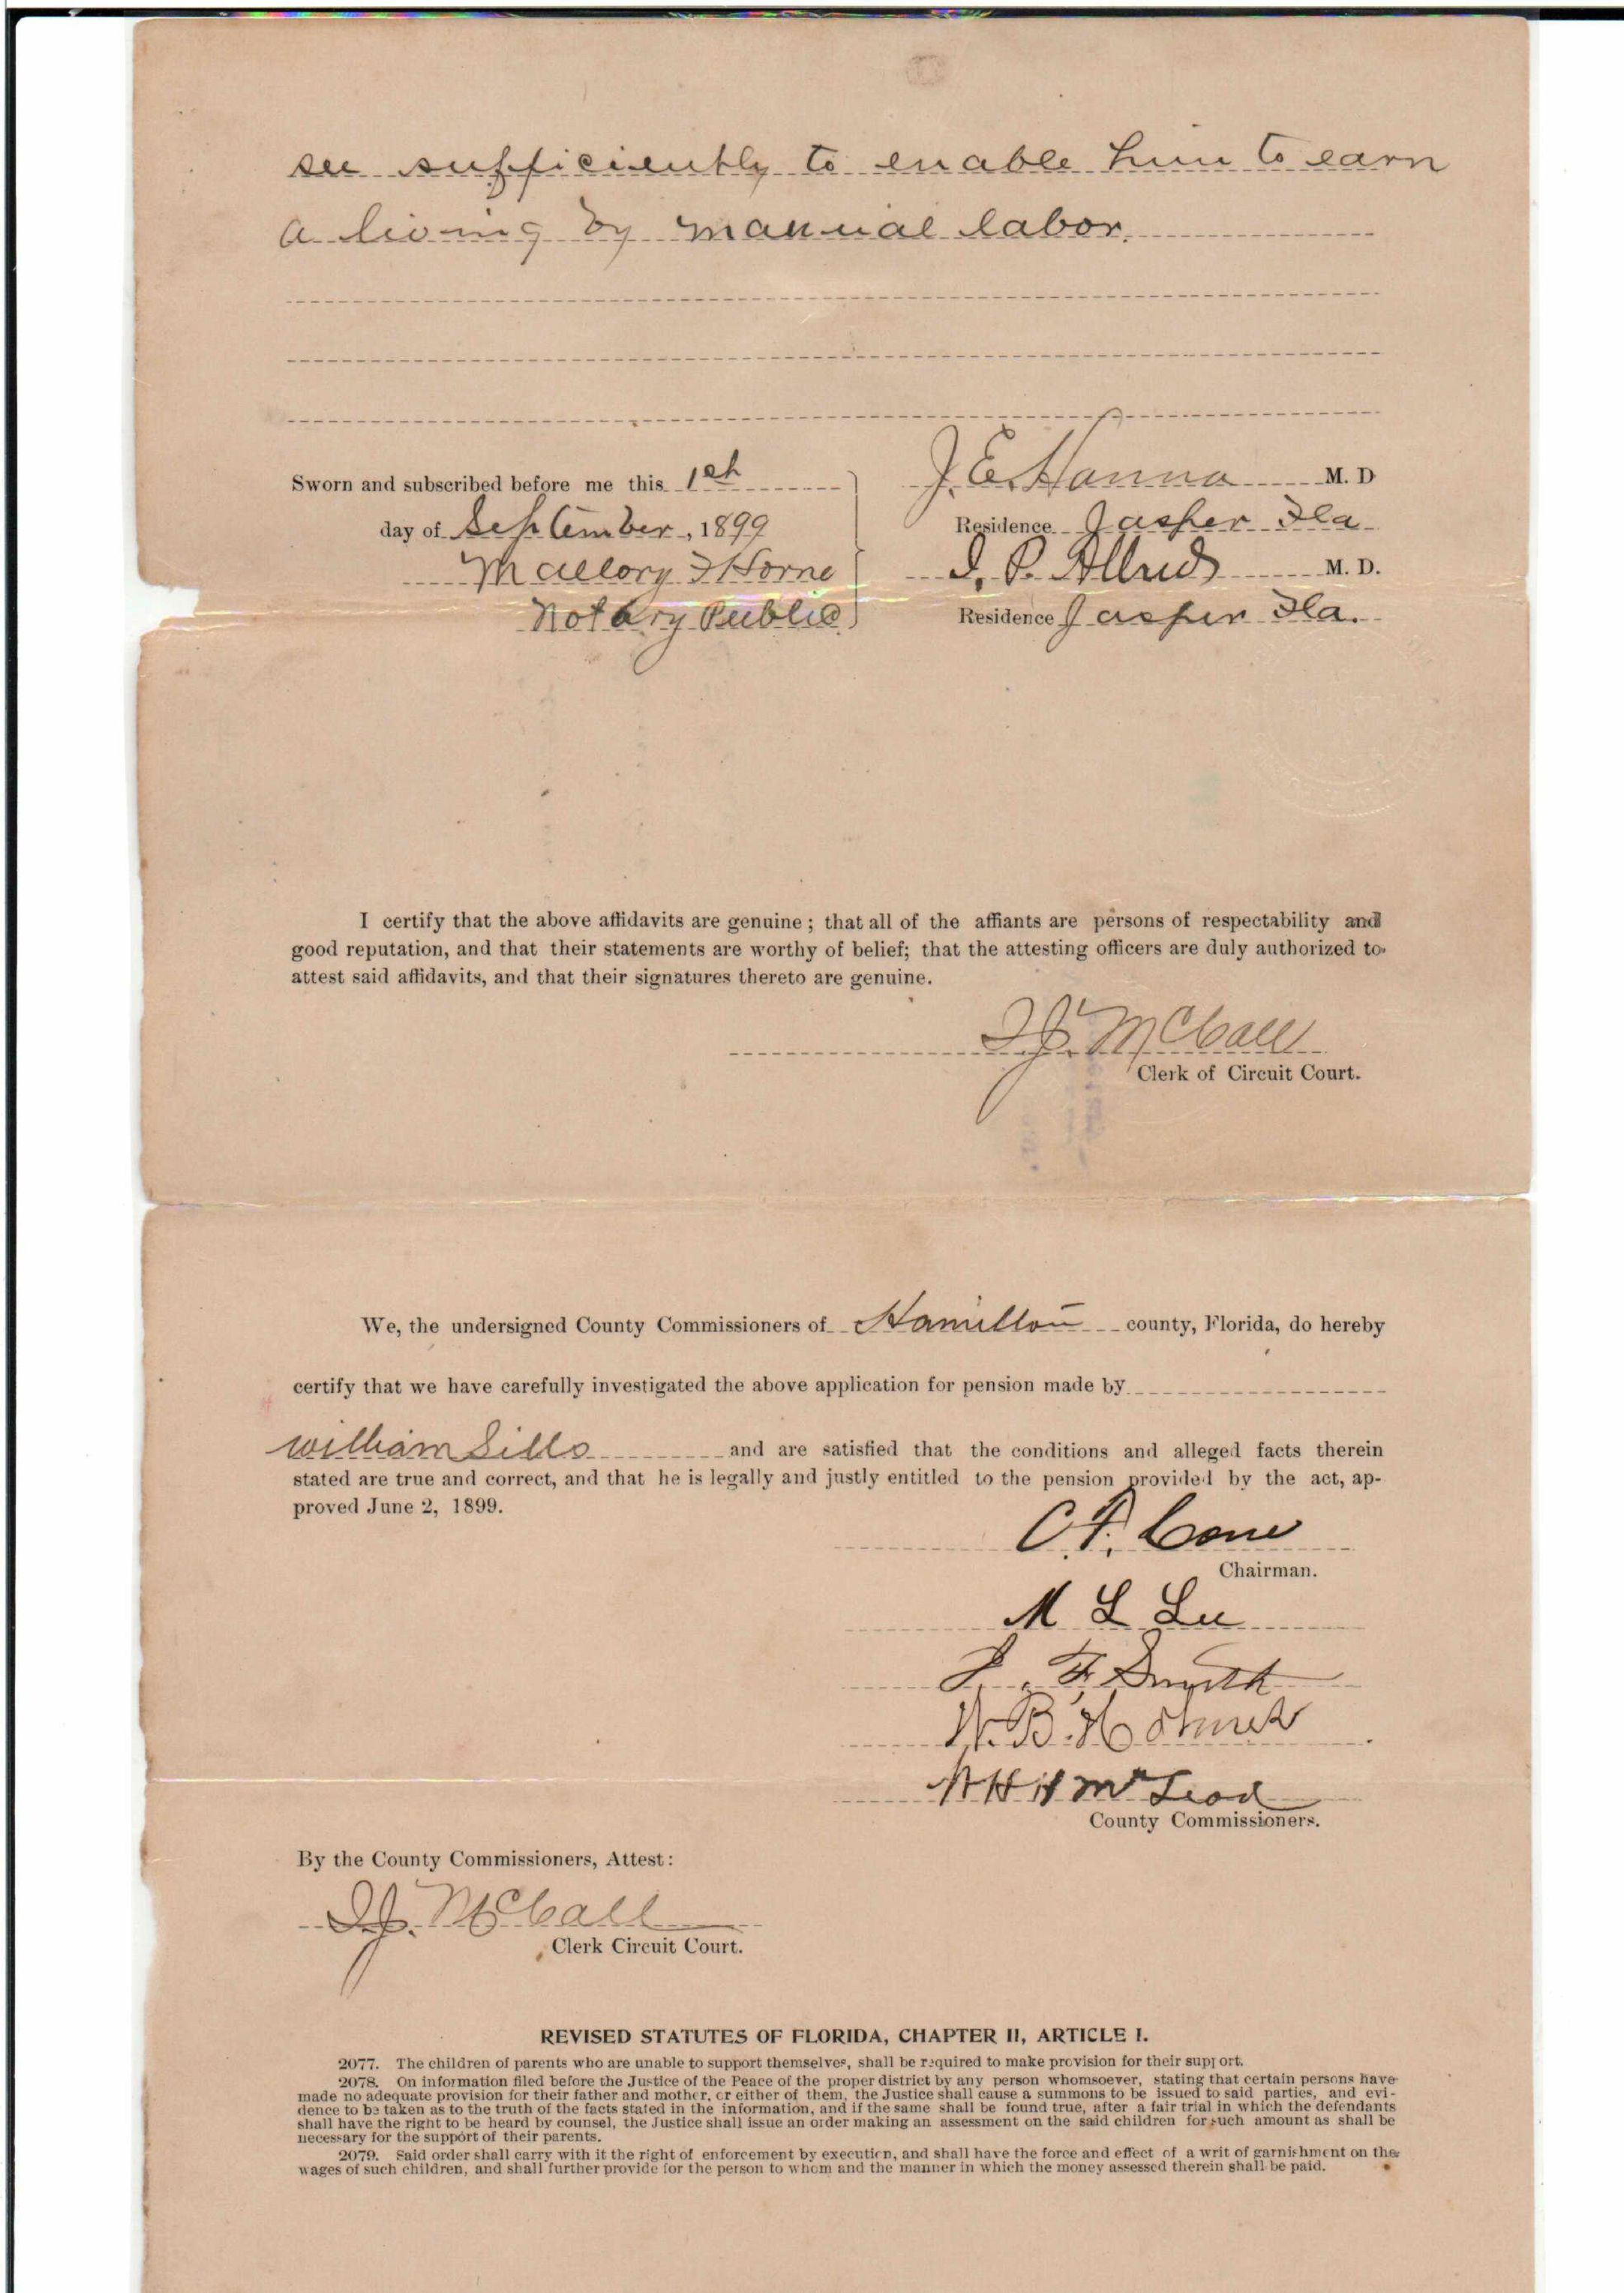 see sufficiently to enable him to earn
a living by manual labor.
Sworn and subscribed before me this 1st
day of September, 1899
Mallory F Horne
Notary Public
J. E. Hanna M. D
Residence Jasper Fla
M. D.
Residence Jasper Fla.
I certify that the above affidavits are genuine; that all of the affiants are persons of respectability and
good reputation, and that their statements are worthy of belief; that the attesting officers are duly authorized to
attest said affidavits, and that their signatures thereto are genuine.
McCall
Clerk of Circuit Court.
We, the undersigned County Commissioners of Hamilton county, Florida, do hereby
certify that we have carefully investigated the above application for pension made by
William Sills and are satisfied that the conditions and alleged facts therein
stated are true and correct, and that he is legally and justly entitled to the pension provided by the act, ap-
proved June 2, 1899.
C. F. Cone
Chairman.
M L Lee
J. F. Smith
W. B.
W H H McLeod
County Commissioners.
By the County Commissioners, Attest:
McCall
Clerk Circuit Court.
REVISED STATUTES OF FLORIDA, CHAPTER II, ARTICLE I.
2077. The children of parents who are unable to support themselves, shall be required to make provision for their support.
2078. On information filed before the Justice of the Peace of the proper district by any person whomsoever, stating that certain persons have
made no adequate provision for their father and mother, or either of them, the Justice shall cause a summons to be issued to said parties, and evi-
dence to be taken as to the truth of the facts stated in the information, and if the same shall be found true, after a fair trial in which the defendants
shall have the right to be heard by counsel, the Justice shall issue an order making an assessment on the said children for such amount as shall be
necessary for the support of their parents.
2079. Said order shall carry with it the right of enforcement by execution, and shall have the force and effect of a writ of garnishment on the
wages of such children, and shall further provide for the person to whom and the manner in which the money assessed therein shall be paid.